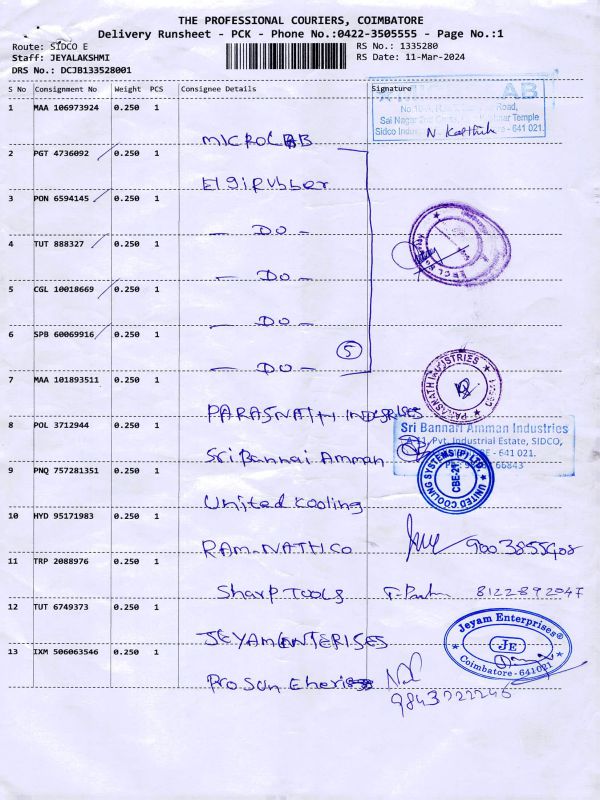 THE PROFESSIONAL COURIERS, COIMBATORE
Delivery Runsheet - PCK - Phone No.:0422-3505555 - Page No.:1
Route: SIDCO E
Staff: JEYALAKSHMI
DRS No.: DCJB133528001
RS No.: 1335280
RS Date: 11-Mar-2024
S No Consignment No Weight PCS Consignee Details Signature
1 MAA 106973924 0.250 1
AB
Road,
Sai Nagar 2nd Temple
Sidco - 641 021.
N. Karthik
MICROLAB
2 PGT 4736092 0.250 1
Elgirubber
3 PON 6594145 0.250 1
— DO —
4 TUT 888327 0.250 1
— DO —
5 CGL 10018669 0.250 1
— DO —
6 SPB 60069916 0.250 1
5
— DO —
7 MAA 101893511 0.250 1
PARASNATH INDUSRIES
PARASNATH INDUSTRIES
8 POL 3712944 0.250 1
Sri Bannari Amman Industries
Pvt. Industrial Estate, SIDCO,
- 641 021.
66843
Sri Bannai Amman
9 PNQ 757281351 0.250 1
UNITED COOLING SYSTEMS (P) LTD.
CBE-21
United Cooling
10 HYD 95171983 0.250 1
RAM-NATH.CO
900 3855908
11 TRP 2088976 0.250 1
Sharp Tools
8122892047
12 TUT 6749373 0.250 1
JEYAM ENTERISES
Jeyam Enterprises®
JE
Coimbatore-641021
13 IXM 506063546 0.250 1
Pro Sun
9843222246